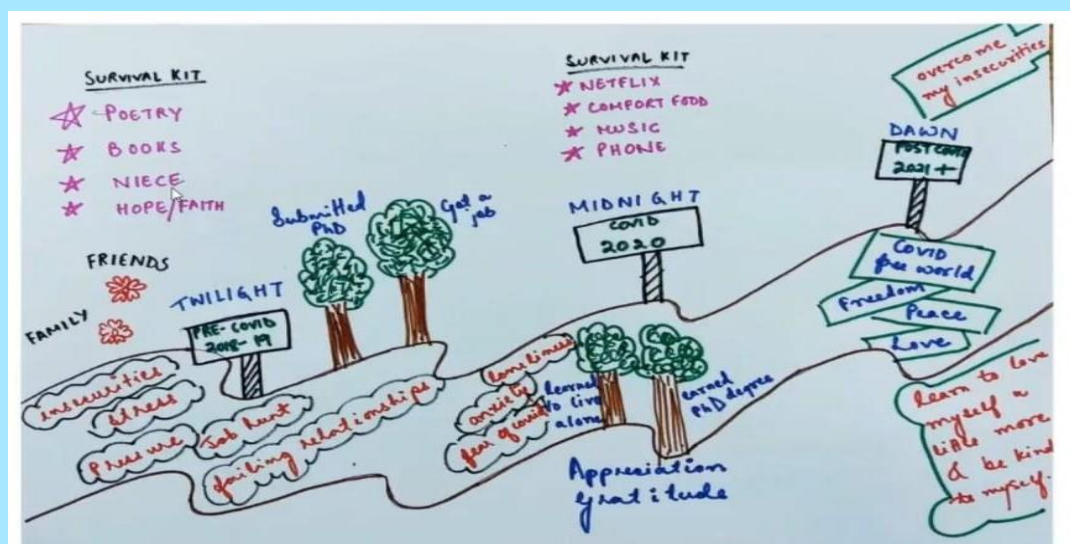 SURVIVAL KIT
POETRY
BOOKS
NIECE
HOPE/FAITH
FRIENDS
FAMILY
TWILIGHT
PRE-COVID
2018-19
Submitted
PhD
Got a
job
insecurities
stress
pressure
Job hunt
failing relationships
SURVIVAL KIT
NETFLIX
COMFORT FOOD
MUSIC
PHONE
MIDNIGHT
COVID
2020
loneliness
anxiety
fear of covid
learned
to live
alone
earned
PhD degree
Appreciation
Gratitude
overcome
my insecurities
DAWN
POST COVID
2021+
COVID
free world
Freedom
Peace
Love
learn to love
myself a
little more
& be kind
to myself.